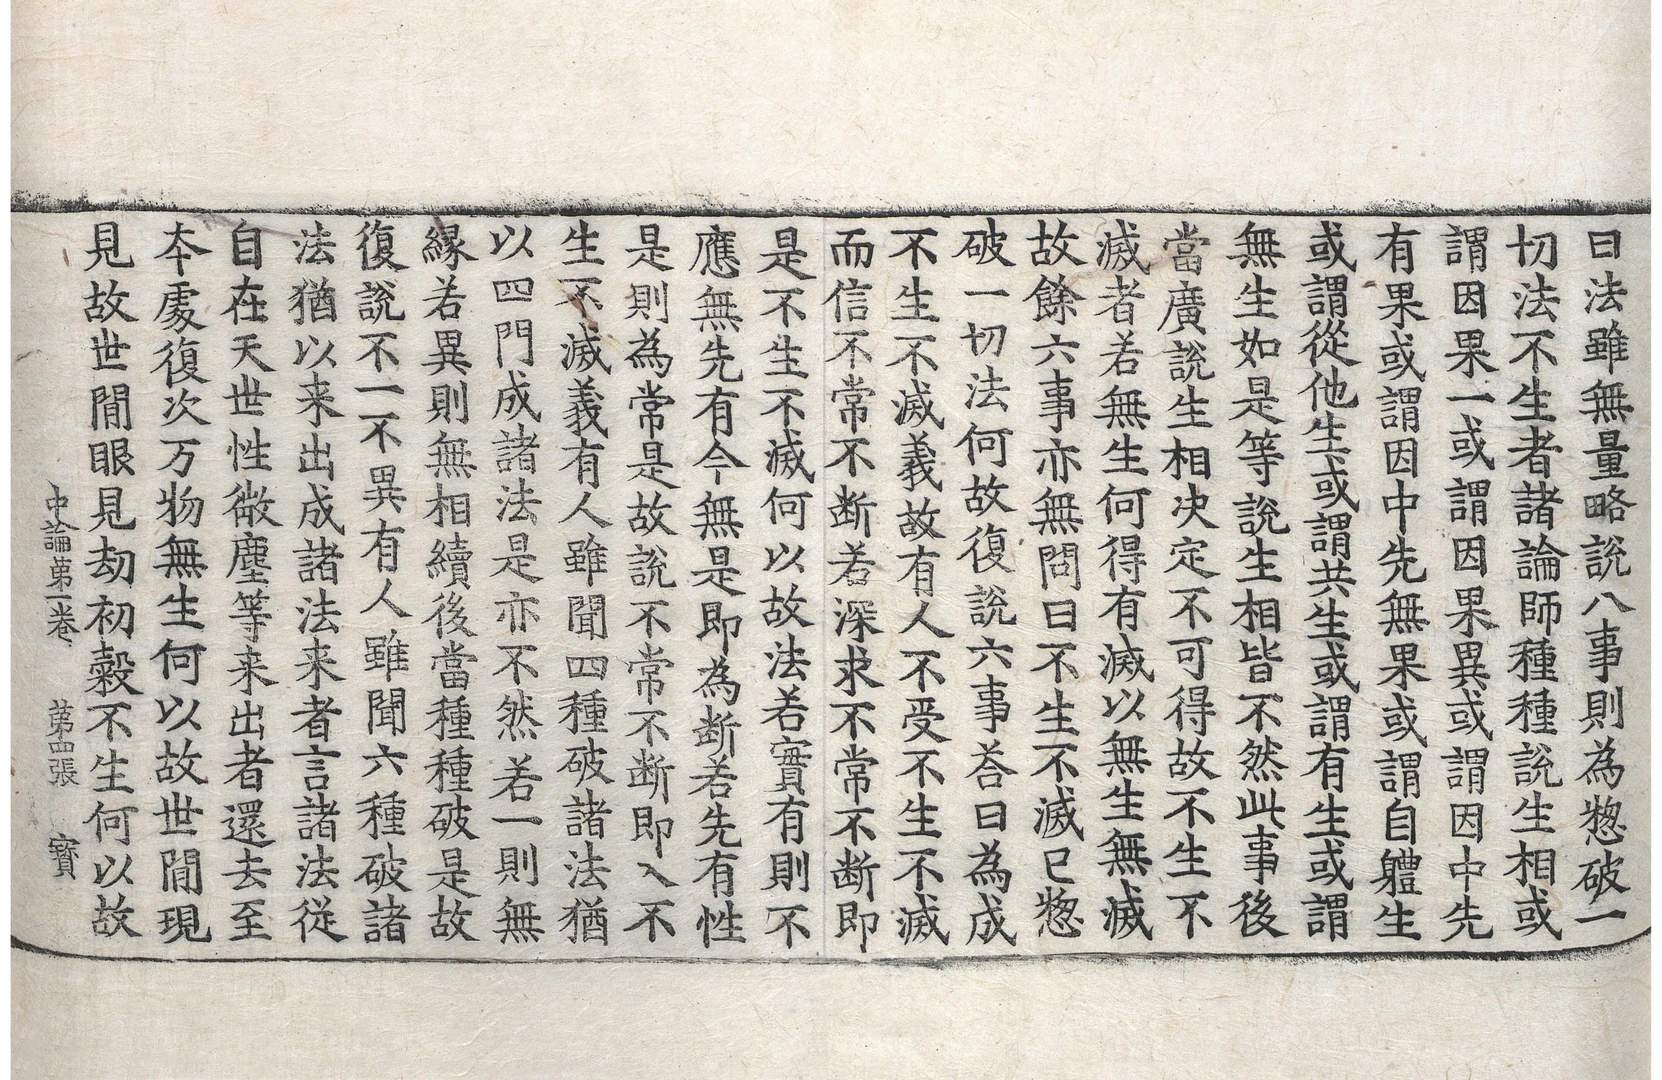 曰法雖無量略說八事則為惣破一
切法不生者諸論師種種說生相或
謂因果一或謂因果異或謂因中先
有果或謂因中先無果或謂自體生
或謂從他生或謂共生或謂有生或謂
無生如是等說生相皆不然此事後
當廣說生相决定不可得故不生不
滅者若無生何得有滅以無生無滅
故餘六事亦無問曰不生不滅已惣
破一切法何故復說六事荅曰為成
不生不滅義故有人不受不生不滅
而信不常不断若深求不常不断即
是不生不滅何以故法若實有則不
應無先有今無是即為断若先有性
是則為常是故說不常不断即入不
生不滅義有人雖聞四種破諸法猶
以四門成諸法是亦不然若一則無
緣若異則無相續後當種種破是故
復說不一不異有人雖聞六種破諸
法猶以来出成諸法来者言諸法從
自在天世性微塵等来出者還去至
本處復次万物無生何以故世間現
見故世間眼見劫初穀不生何以故
中論第一卷 第四張 寳